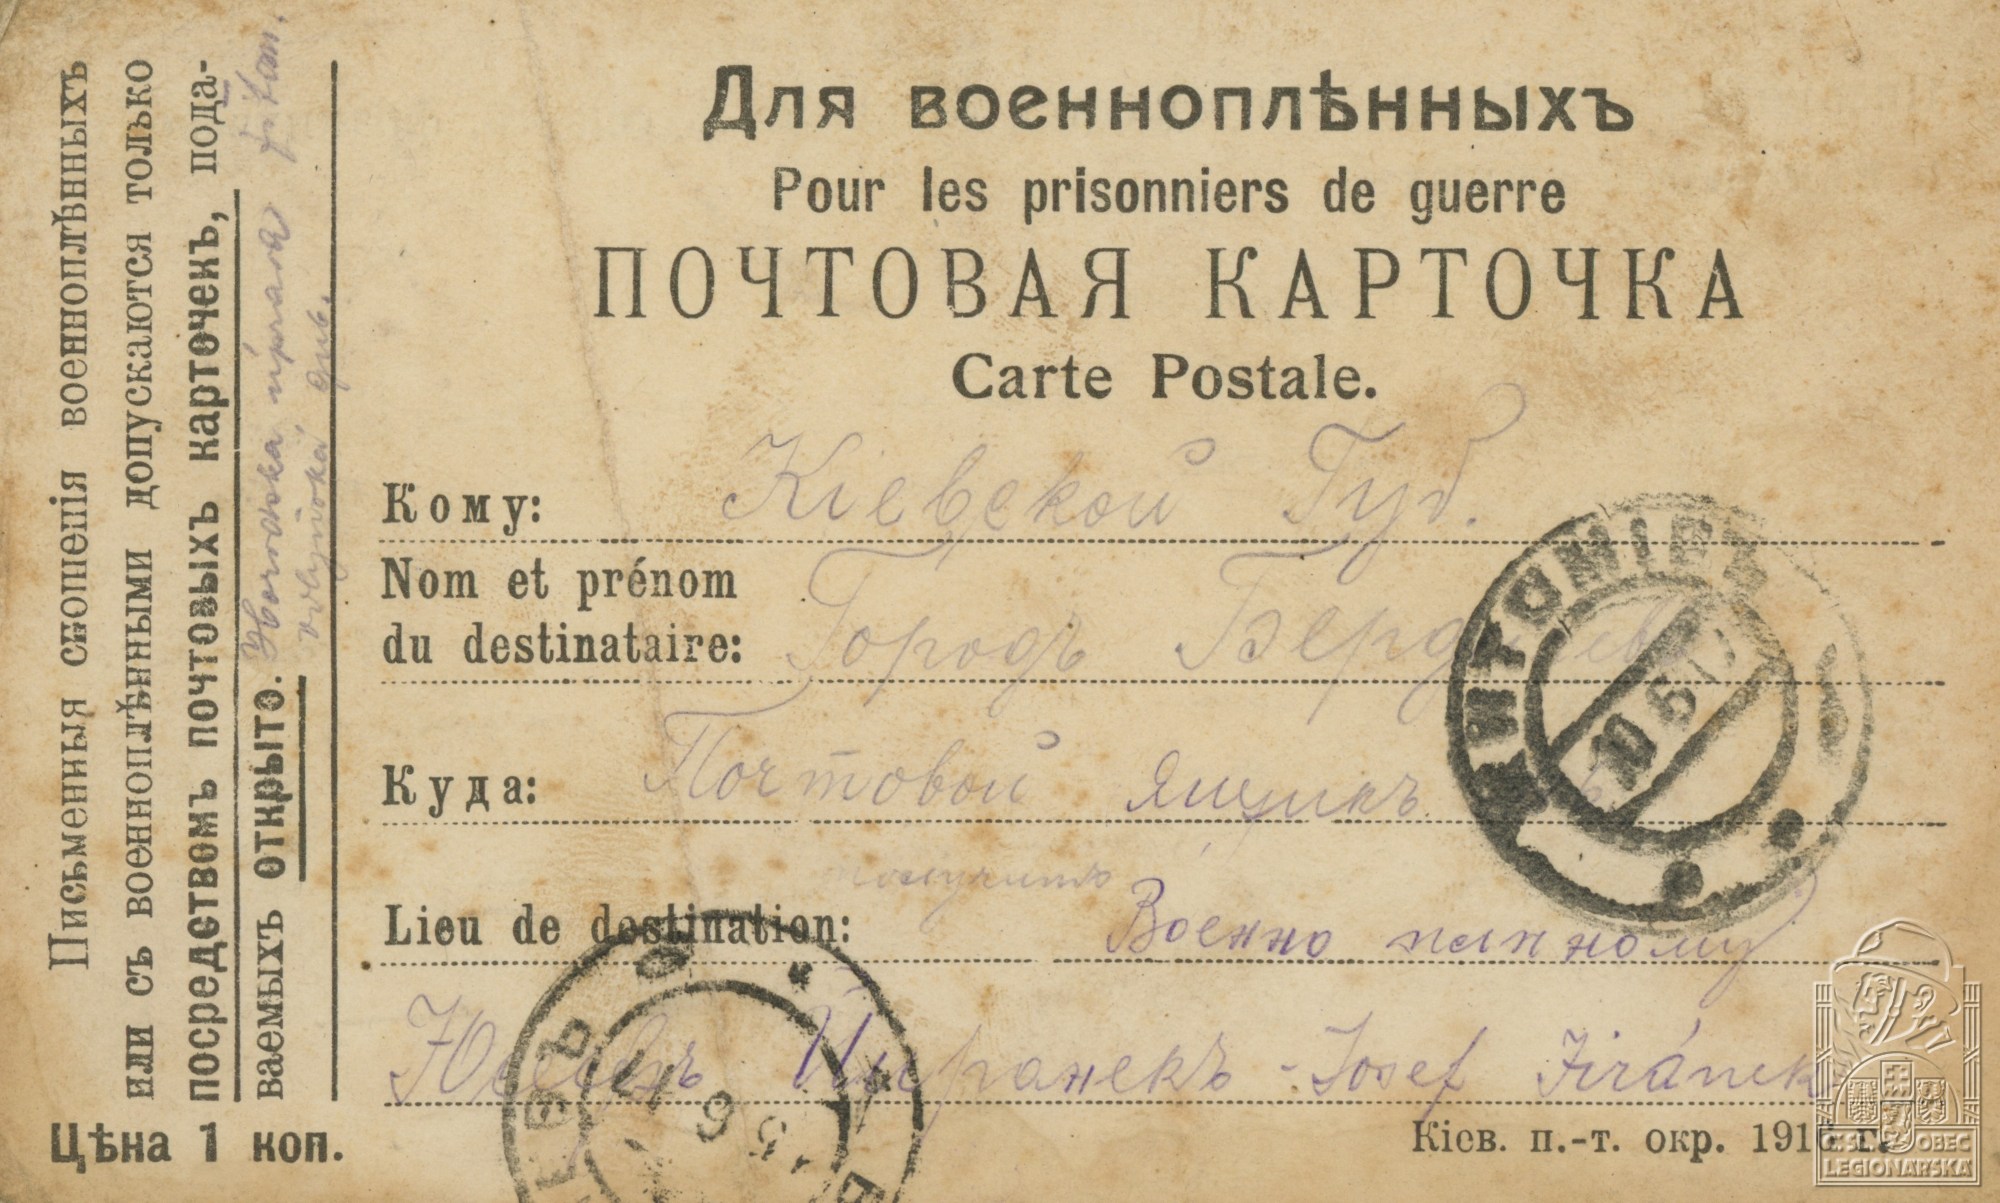 Для военноплѣнныхъ
Pour les prisonniers de guerre
ПОЧТОВАЯ КАРТОЧКА
Carte Postale.
Кому: Кіевской Губ.
Nom et prénom
du destinataire: Городъ Бердичев
Куда: Почтовой ящикъ
получить
Lieu de destination: Военно плѣнному
Юсефъ Йиранекъ - Josef Jiránek
Кіев. п.-т. окр. 1916 г.
Письменныя сношенія военноплѣнныхъ
или съ военноплѣнными допускаются только
посредствомъ почтовыхъ карточекъ, пода-
ваемыхъ открыто.
Цѣна 1 коп.
ЖИТОМІРЪ
10 6 17
11 6 9
C.SL. OBEC
LEGIONÁŘSKÁ